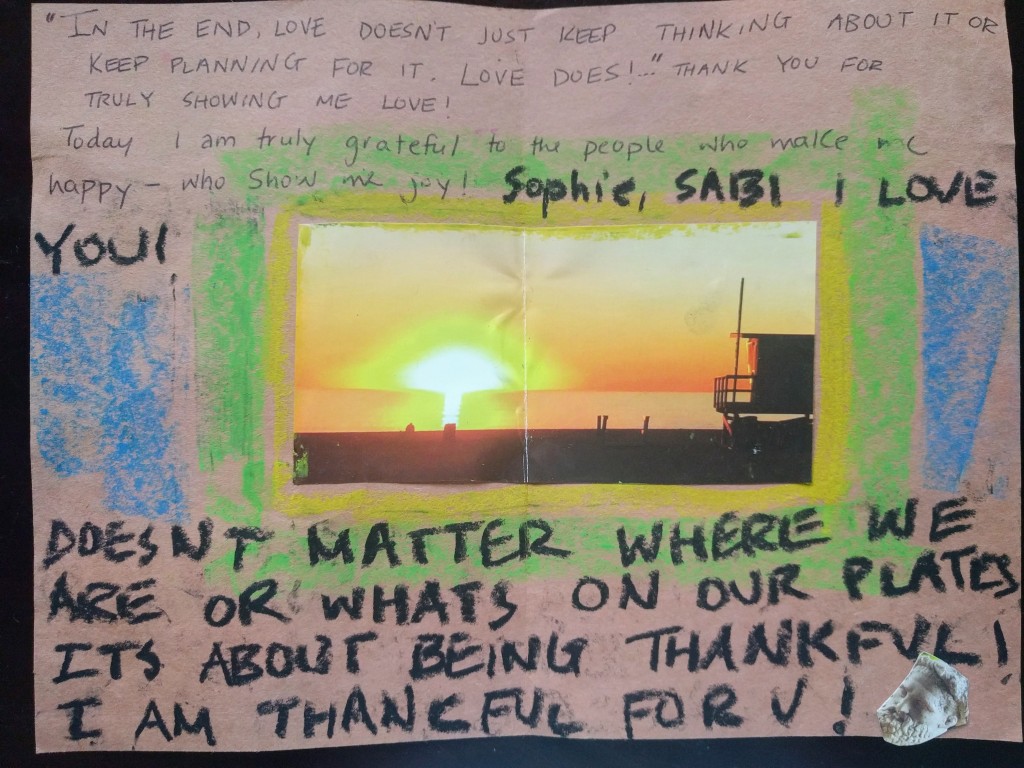 "IN THE END, LOVE DOESN'T JUST KEEP THINKING ABOUT IT OR
KEEP PLANNING FOR IT. LOVE DOES!..." THANK YOU FOR
TRULY SHOWING ME LOVE!
Today I am truly grateful to the people who make me
happy - who show me joy! Sophie, SABI I LOVE
YOU!
DOESNT MATTER WHERE WE
ARE OR WHATS ON OUR PLATES
ITS ABOUT BEING THANKFUL!
I AM THANKFUL FOR U!